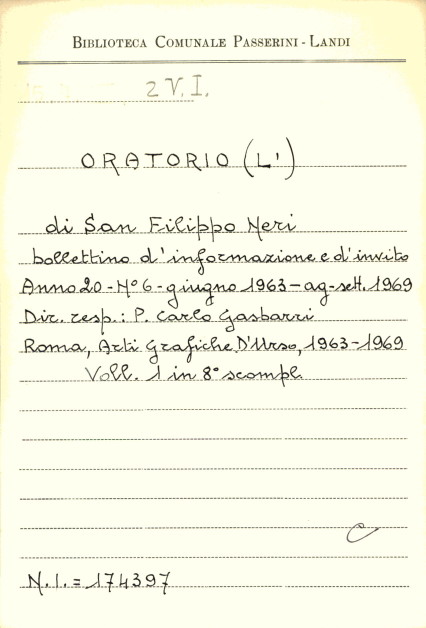 BIBLIOTECA COMUNALE PASSERINI - LANDI
2 V. I.
ORATORIO (L')
di San Filippo Neri
bollettino d'informazione e d'invito
Anno 20 - N° 6 - giugno 1963 - ag-sett. 1969
Dir. resp.: P. Carlo Gasbarri
Roma, Arti Grafiche D'Urso, 1963-1969
Voll. 1 in 8° scompl.
C
N.I. = 174397